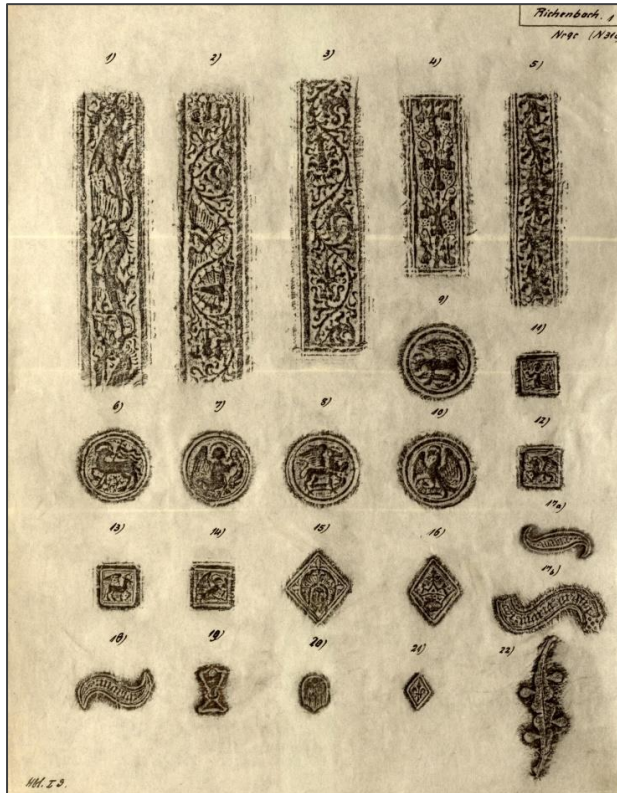 Richenbach. 1
1) 2) 3) 4) 5)
9)
11)
6) 7) 8) 10) 12)
13) 14) 15) 16) 17a)
17b)
18) 19) 20) 21) 22)